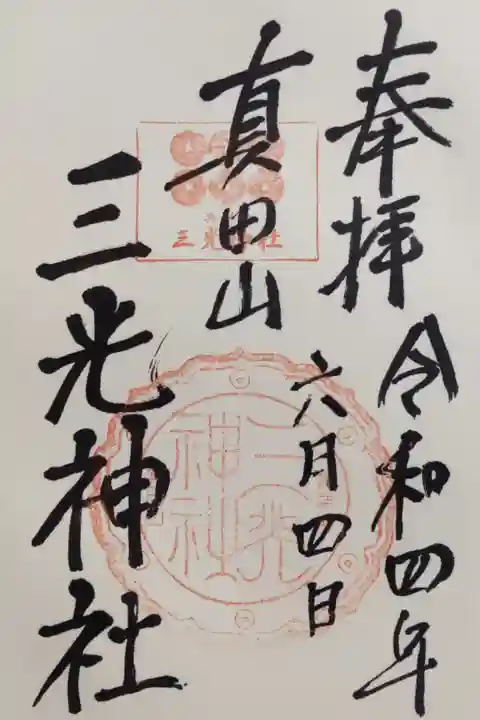 奉拝
令和四年
六月四日
真田山
三光神社
三光神社
三光
神社